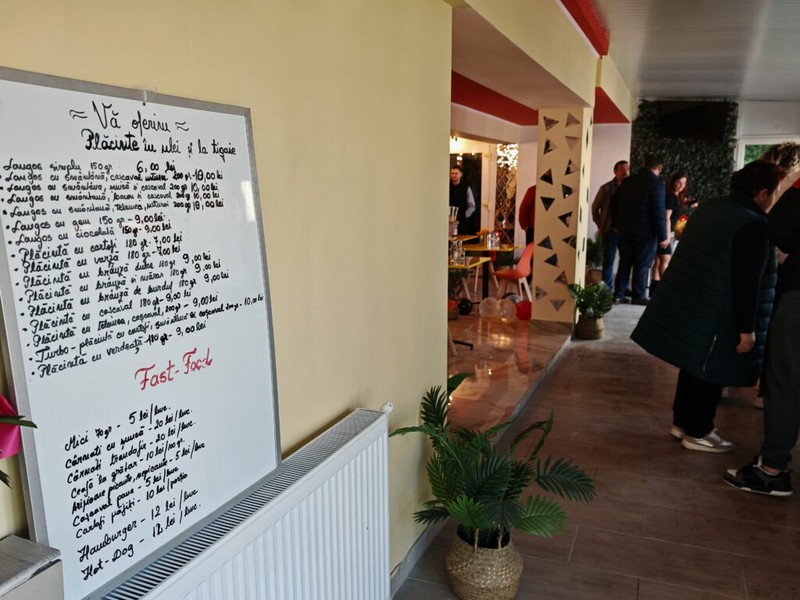 ≈ Vă oferim ≈
Plăcinte în ulei și la tigaie
• Langos simplu 150 gr. 6,00 lei
• Langos cu smântână, cascaval 200 gr 10,00 lei
• Langos cu smântână, și cascaval 200 gr 10,00 lei
• Langos cu smântână, bacon și cascaval 200 gr 10,00 lei
• Langos cu smântână, Telemea, 200 gr 10,00 lei
• Langos cu gem 150 gr - 9,00 lei
• Langos cu ciocolată 150 gr - 9,00 lei
• Plăcintă cu cartofi 180 gr - 7,00 lei
• Plăcintă cu varză 180 gr - 7,00 lei
• Plăcintă cu brânză dulce 180 gr 9,00 lei
• Plăcintă cu brânză și mărar 180 gr 9,00 lei
• Plăcintă cu brânză de burduf 180 gr 9,00 lei
• Plăcintă cu cascaval 180 gr - 9,00 lei
• Plăcintă cu telemea, cascaval, 200 gr - 9,00 lei
• Turbo - plăcintă cu cartofi, smântână și cascaval 200 gr - 10,00 lei
• Plăcintă cu verdeață, 180 gr - 9,00 lei
Fast-Food
Mici 70 gr - 5 lei/buc.
Cârnați cu - 20 lei/buc.
Cârnați - 20 lei/buc.
Ceafă la grătar - 10 lei/
Aripioare picante, nepicante - 5 lei/buc.
Cascaval pane - 5 lei/buc.
Cartofi prăjiți - 10 lei/porție
Hamburger - 12 lei/buc.
Hot-Dog - 12 lei/buc.